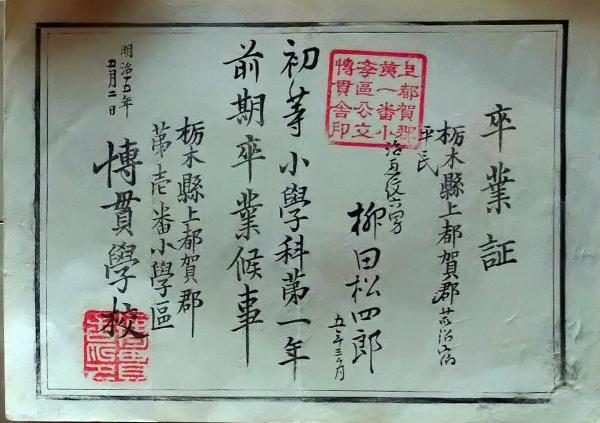 卒業証
栃木縣上都賀郡
平民
柳田松四郎
五年三ヶ月
初等小學科第一年
前期卒業候事
栃木縣上都賀郡
第壱番小學區
博貫學校
明治十五年
五月二日
上都賀郡
第一番小
學區公立
博貫舎印